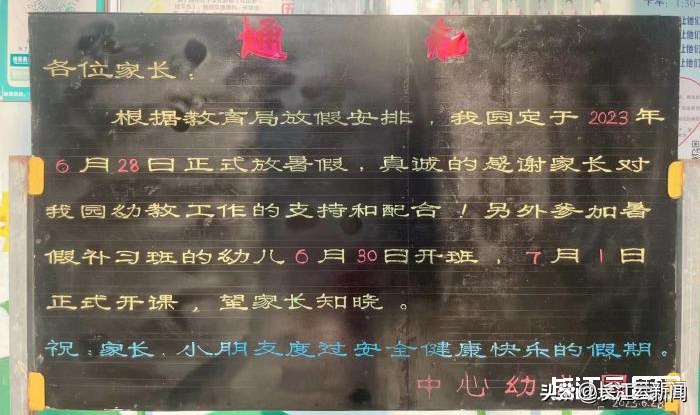 通 知
各位家长：
根据教育局放假安排，我园定于2023年
6月28日正式放暑假，真诚的感谢家长对
我园幼教工作的支持和配合！另外参加暑
假补习班的幼儿6月30日开班，7月1日
正式开课，望家长知晓。
祝：家长、小朋友度过安全健康快乐的假期。
中心幼
2023.6.28
头条@长江云新闻